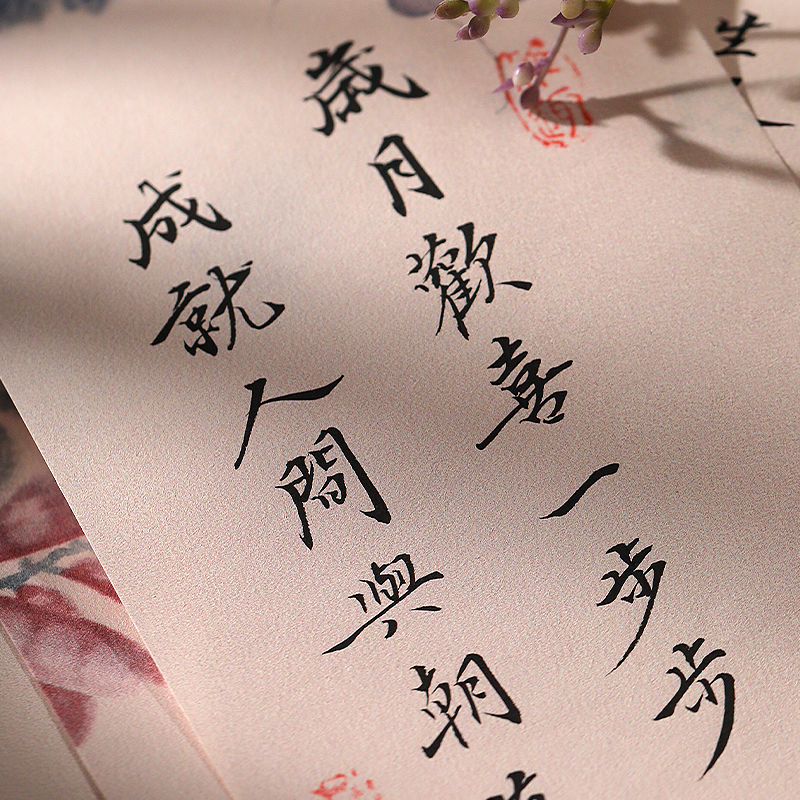 歲月歡喜一步步
成就人間與朝
生